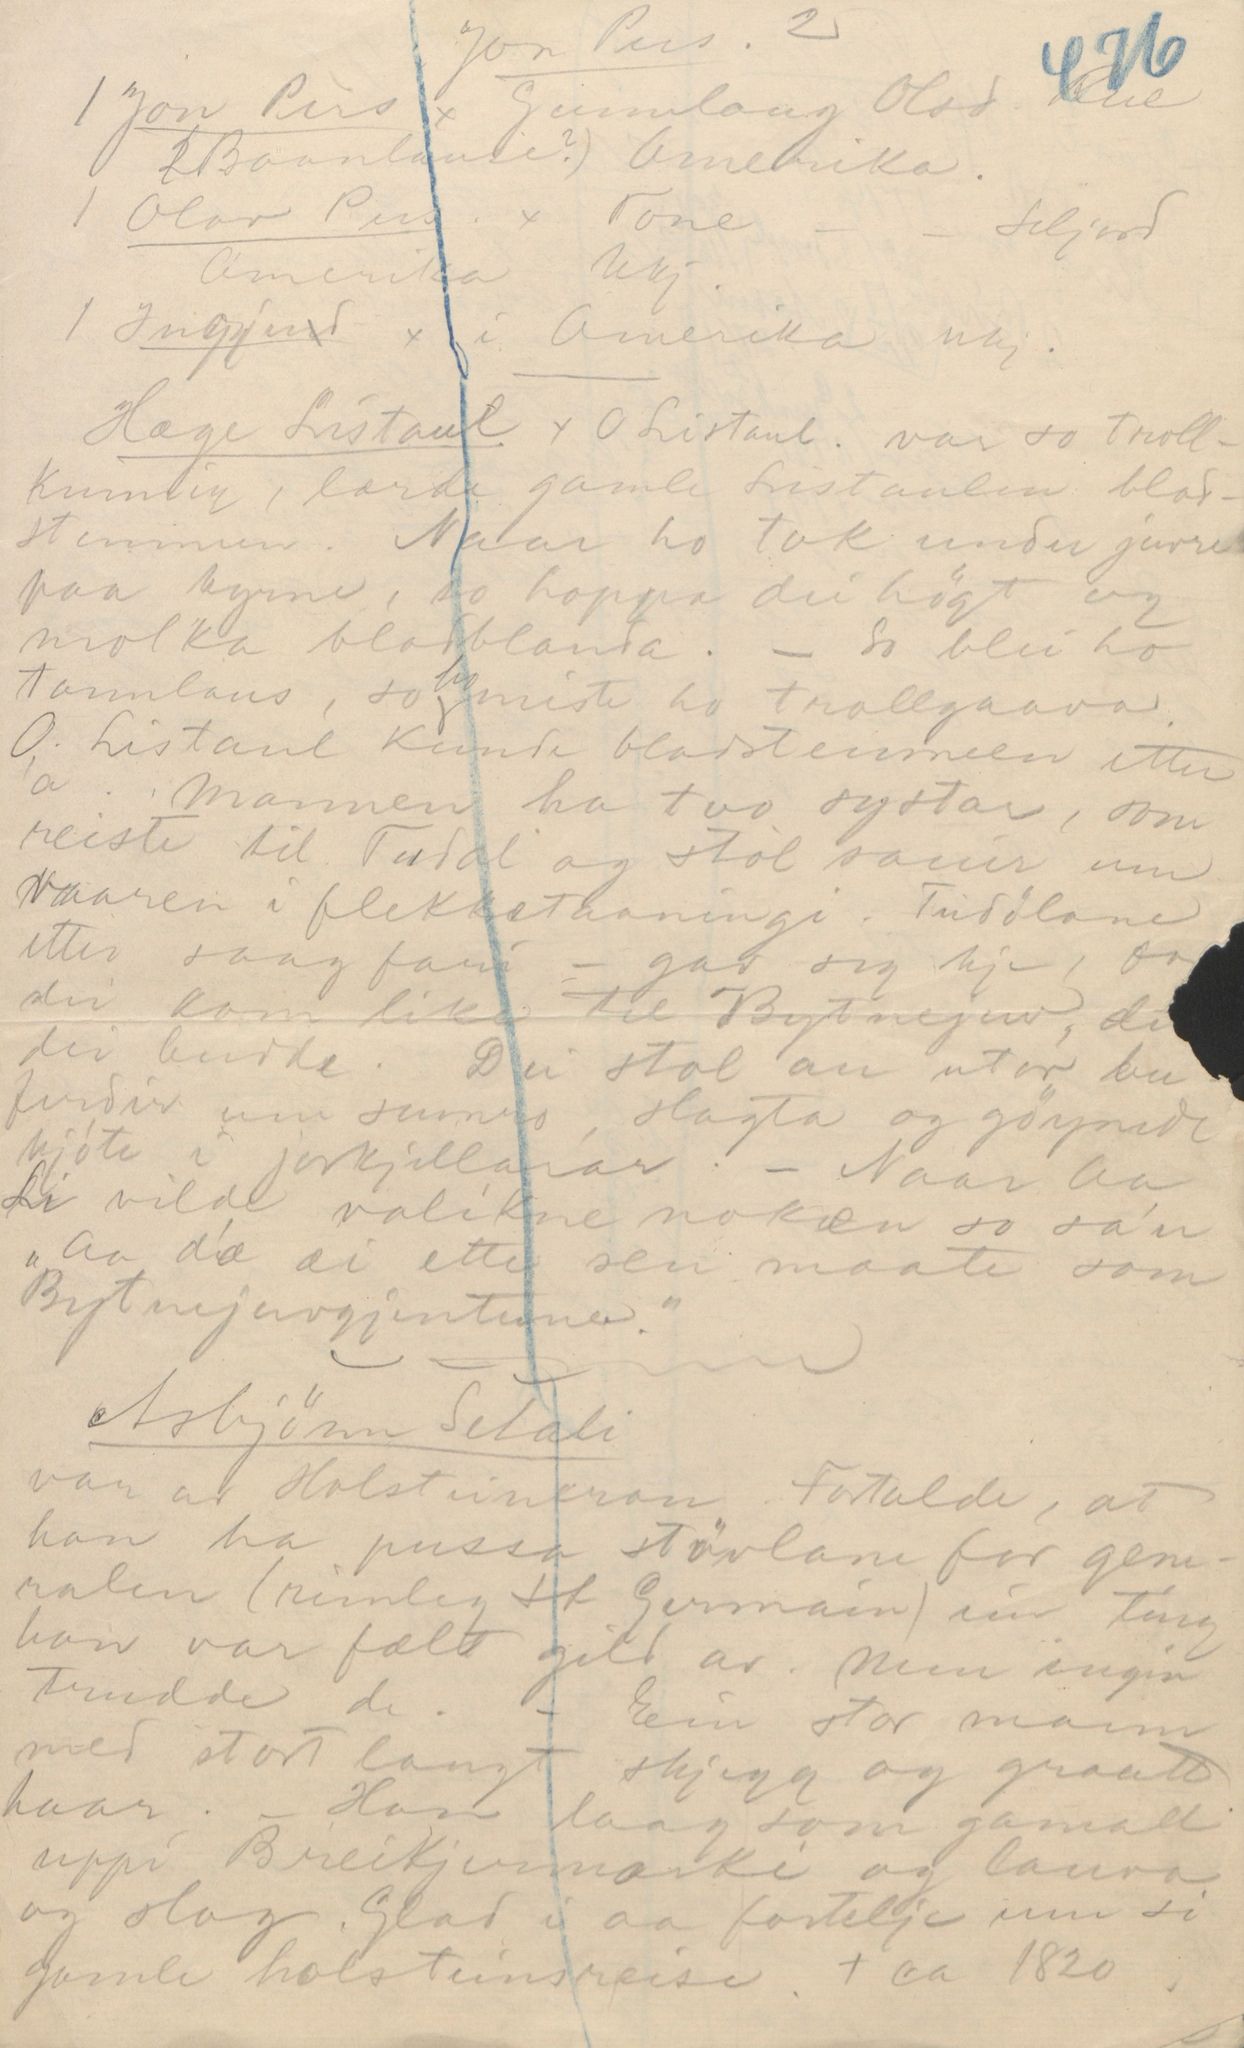 Jon Pers. 2
476
1 Jon Pers x Gunnlaug Olsd.
Amerika.
1 Olav Pers. x Tone - - Seljord
Amerika ukj.
1 Inggjerd x i Amerika ukj.
Hæge Listaul x O Listaul. var so troll-
kunnig, lærde gamle Listaulen blod-
stemmen. Naar ho tok under juvre
paa kyrne, so hoppa dei högt og
molka blodblanda. - So blei ho
tannlaus, so miste ho trollgaava.
O. Listaul kunde blodstemmen etter
'a. Mannen ha tvo systar, som
reiste til Tuddal og stol sauir um
vaaren i flekkætaaningi. Tudölane
ettir saag fari - gav seg kje, før
dei kom like til Bytnejuv, der
dei budde. Dei stol au utor bu-
ferdir um sumro, slagta og göymde
kjöte i jorkjellarar. - Naar Aa
Li vilde valikne nokæn so sa'n
"Aa d'æ ei ette sen maate som
Bytnejuvgjentune."
Asbjönn Selali
var av Holsteinkran. Fortalde, at
han ha pussa stövlane for gene-
ralen (rimleg St Germain) ein ting
han var fælt gild av. Men ingin
trudde de. - Ein stor mann
med stort langt skjegg og graatt
haar. - Han laag som gamall
uppi Breikjunmarki og lauva
og slog. Glad i aa fortelje um si
gamle holsteinsreise. + ca 1820.